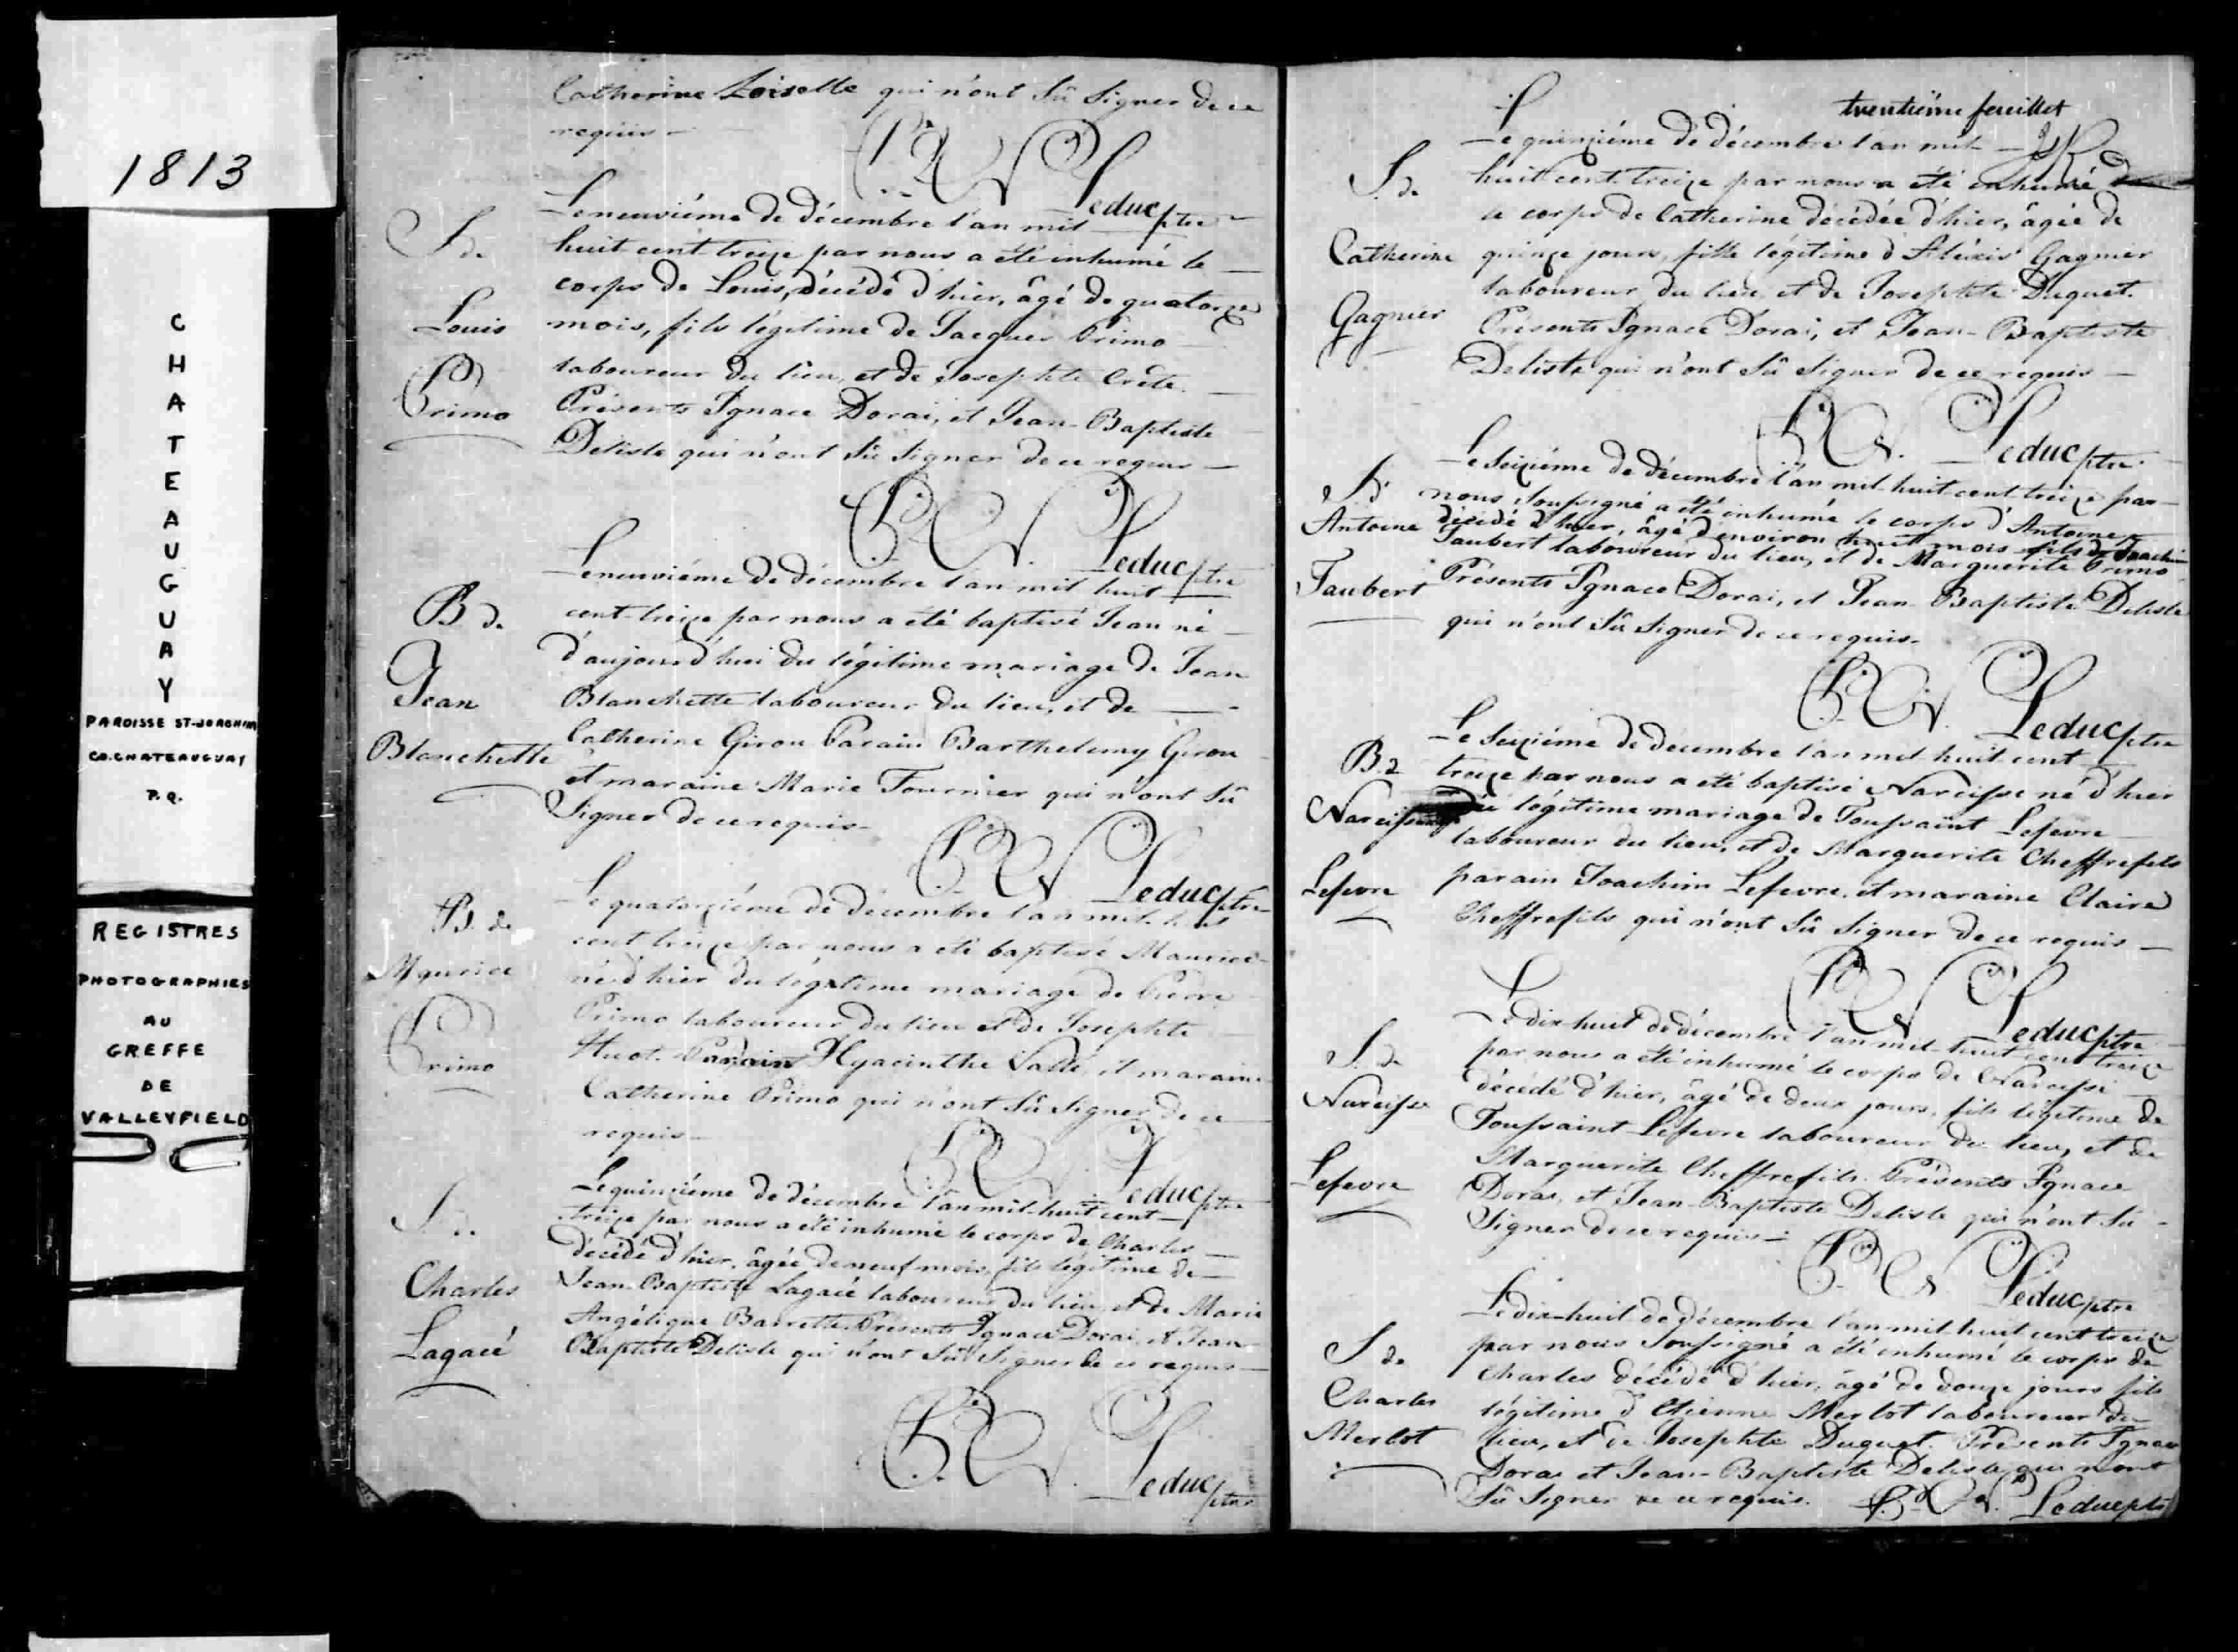 1813
CHATEAUGUAY
PAROISSE ST-JOACHIM
CO. CHATEAUGUAY
P.Q.
REGISTRES
PHOTOGRAPHIES
AU
GREFFE
DE
VALLEYFIELD
Catherine Loiselle qui n'ont sû signer de ce
requis —
Leduc ptre
S. de
Louis
Primo
Le neuvième de décembre l'an mil
huit cent treize par nous a été inhumé le
corps de Louis, décédé d'hier, âgé de quatorze
mois, fils légitime de Jacques Primo
laboureur du lieu, et de Josephte Crête.
Présents Ignace Dorai, et Jean-Baptiste
Delisle qui n'ont sû signer de ce requis —
Leduc ptre
B de
Jean
Blanchette
Le neuvième de décembre l'an mil huit
cent-treize par nous a été baptisé Jean né
d'aujourd'hui du légitime mariage de Jean
Blanchette laboureur du lieu, et de —
Catherine Girou Parain Barthelemy Girou
et maraine Marie Fournier qui n'ont sû
signer de ce requis —
Leduc ptre
B. de
Maurice
Primo
Le quatorzième de décembre l'an mil huit
cent treize par nous a été baptisé Maurice
né d'hier du légitime mariage de Pierre
Primo laboureur du lieu et de Josephte
Huot. Parain Hyacinthe Vallé, et maraine
Catherine Primo qui n'ont sû signer de ce
requis —
Leduc ptre
S. de
Charles
Lagacé
Le quinzième de décembre l'an mil-huit cent
treize par nous a été inhumé le corps de Charles
décédé d'hier, âgée de neuf mois, fils légitime de
Jean-Baptiste Lagacé laboureur du lieu, et de Marie
Angélique Barrette. Présents Ignace Dorai, et Jean
Baptiste Delisle qui n'ont sû signer de ce requis —
Leduc ptre
trentième feuillet
S. de
Catherine
Gagnier
Le quinzième de décembre l'an mil —
huit cent treize par nous a été inhumé
le corps de Catherine décédée d'hier, âgée de
quinze jours, fille légitime d'Aléxis Gagnier
laboureur du lieu, et de Josephte Duquet.
Présents Ignace Dorai, et Jean-Baptiste
Delisle qui n'ont sû signer de ce requis —
Leduc ptre
S. d'
Antoine
Jaubert
Le seizième de décembre l'an mil-huit cent treize par
nous soussigné a été inhumé le corps d'Antoine
décédé d'hier, âgé d'environ huit mois fils de Joachim
Jaubert laboureur du lieu, et de Marguerite Primo
Présents Ignace Dorai, et Jean Baptiste Delisle
qui n'ont sû signer de ce requis —
Leduc ptre
B. d
Narcisse
Lefevre
Le seizième de décembre l'an mil-huit-cent
treize par nous a été baptisé Narcisse né d'hier
du légitime mariage de Toussaint Lefevre
laboureur du lieu, et de Marguerite Cheffrefils
parain Joachim Lefevre, et maraine Claire
Cheffrefils qui n'ont sû signer de ce requis —
Leduc ptre
S. de
Narcisse
Lefevre
Le dix-huit de décembre l'an mil-huit cent treize
par nous a été inhumé le corps de Narcisse
décédé d'hier, âgé de deux jours, fils légitime de
Toussaint Lefevre laboureur du lieu, et de
Marguerite Cheffrefils. Présents Ignace
Dorai, et Jean-Baptiste Delisle qui n'ont sû
signer de ce requis —
Leduc ptre
S de
Charles
Merlot
Le dix-huit de décembre l'an mil huit cent treize
par nous soussigné a été inhumé le corps de
Charles décédé d'hier, âgé de douze jours fils
légitime d'Etienne Merlot laboureur du
lieu, et de Josephte Duquet. Présents Ignace
Dorai et Jean-Baptiste Delisle qui n'ont
sû signer de ce requis. Leduc ptre